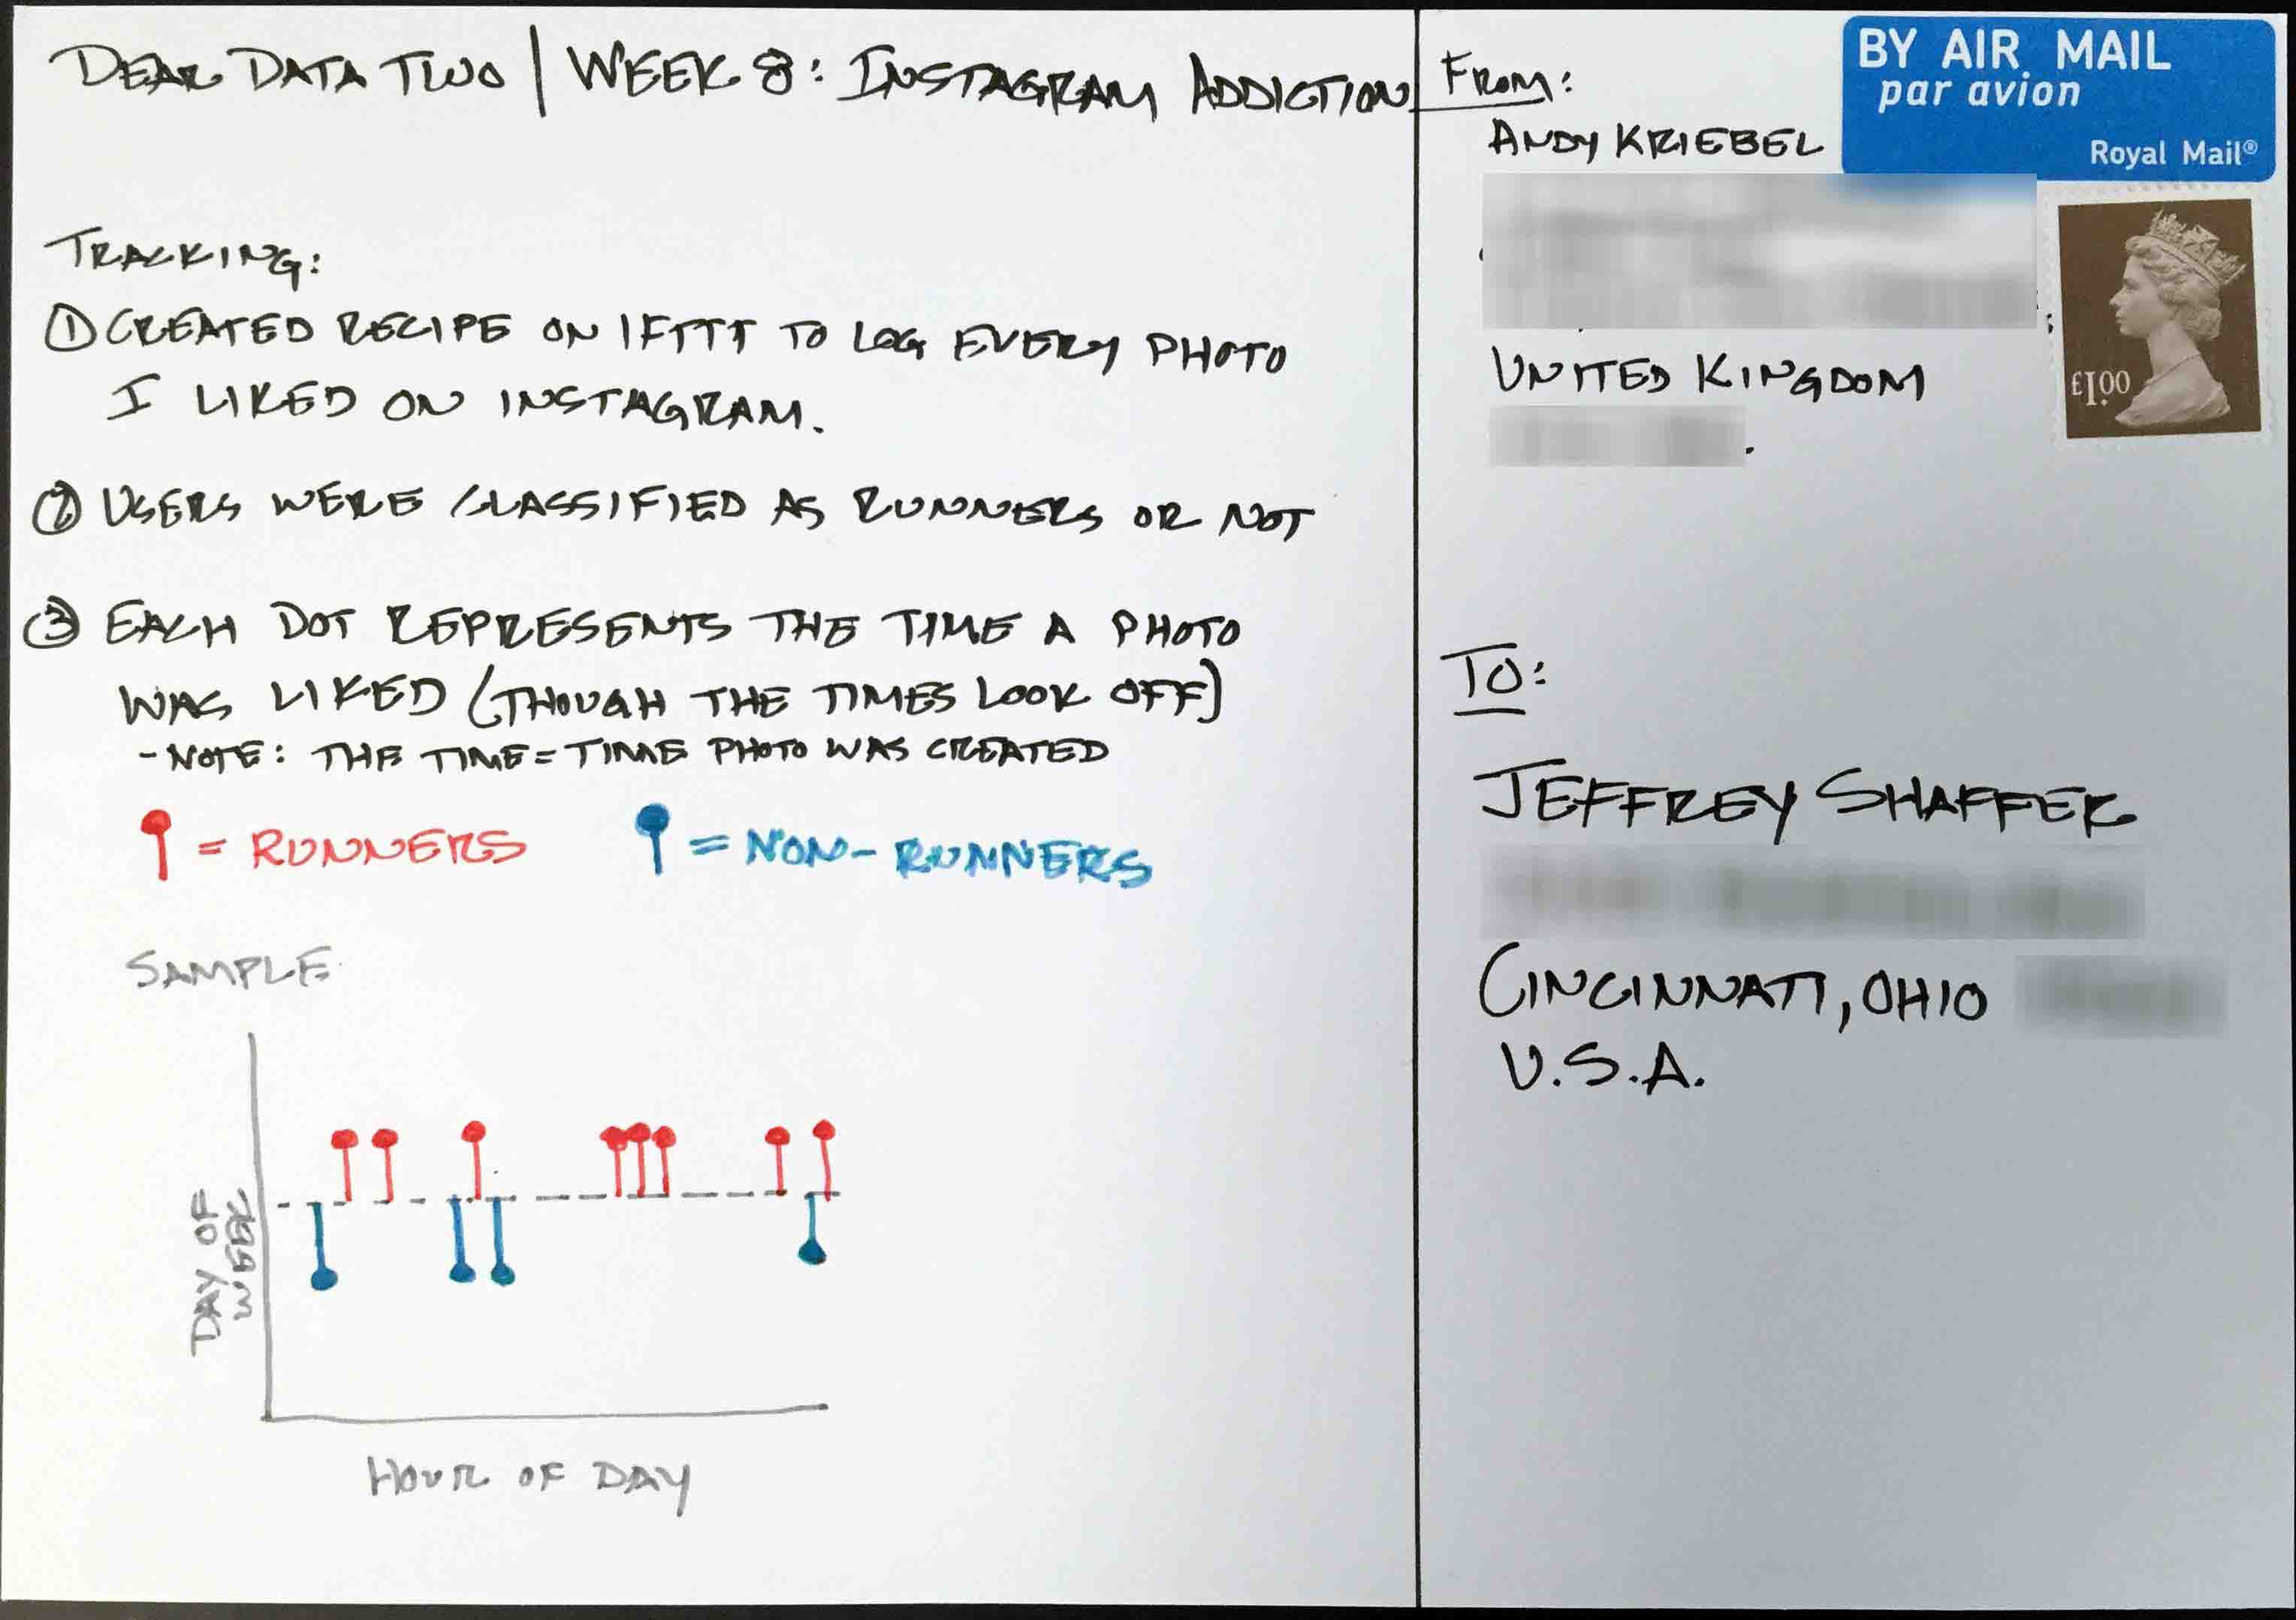 DEAR DATA TWO | WEEK 8: INSTAGRAM ADDICTION
TRACKING:
① CREATED RECIPE ON IFTTT TO LOG EVERY PHOTO
I LIKED ON INSTAGRAM.
② USERS WERE CLASSIFIED AS RUNNERS OR NOT
③ EACH DOT REPRESENTS THE TIME A PHOTO
WAS LIKED (THOUGH THE TIMES LOOK OFF)
- NOTE: THE TIME = TIME PHOTO WAS CREATED
= RUNNERS
= NON-RUNNERS
SAMPLE
DAY OF
WEEK
HOUR OF DAY
FROM:
ANDY KRIEBEL
UNITED KINGDOM
BY AIR MAIL
par avion
Royal Mail®
£1.00
TO:
JEFFREY SHAFFER
CINCINNATI, OHIO
U.S.A.